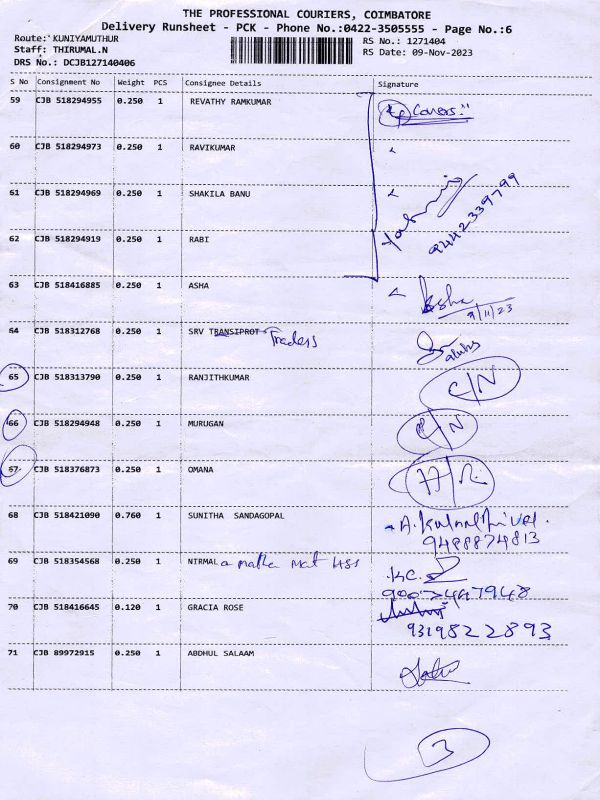 THE PROFESSIONAL COURIERS, COIMBATORE
Delivery Runsheet - PCK - Phone No.:0422-3505555 - Page No.:6
Route: KUNIYAMUTHUR RS No.: 1271404
Staff: THIRUMAL.N RS Date: 09-Nov-2023
DRS No.: DCJB127140406
S No Consignment No Weight PCS Consignee Details Signature
59 CJB 518294955 0.250 1 REVATHY RAMKUMAR Covers"
60 CJB 518294973 0.250 1 RAVIKUMAR
61 CJB 518294969 0.250 1 SHAKILA BANU
9442339799
62 CJB 518294919 0.250 1 RABI
63 CJB 518416885 0.250 1 ASHA Asha
9/11/23
64 CJB 518312768 0.250 1 SRV TRANSIPROT Traders
65 CJB 518313790 0.250 1 RANJITHKUMAR C/N
66 CJB 518294948 0.250 1 MURUGAN C/N
67 CJB 518376873 0.250 1 OMANA
68 CJB 518421090 0.760 1 SUNITHA SANDAGOPAL
9488874813
69 CJB 518354568 0.250 1 NIRMAL a matha mat hss K.C.
9007497948
70 CJB 518416645 0.120 1 GRACIA ROSE
9319822893
71 CJB 89972915 0.250 1 ABDHUL SALAAM
3